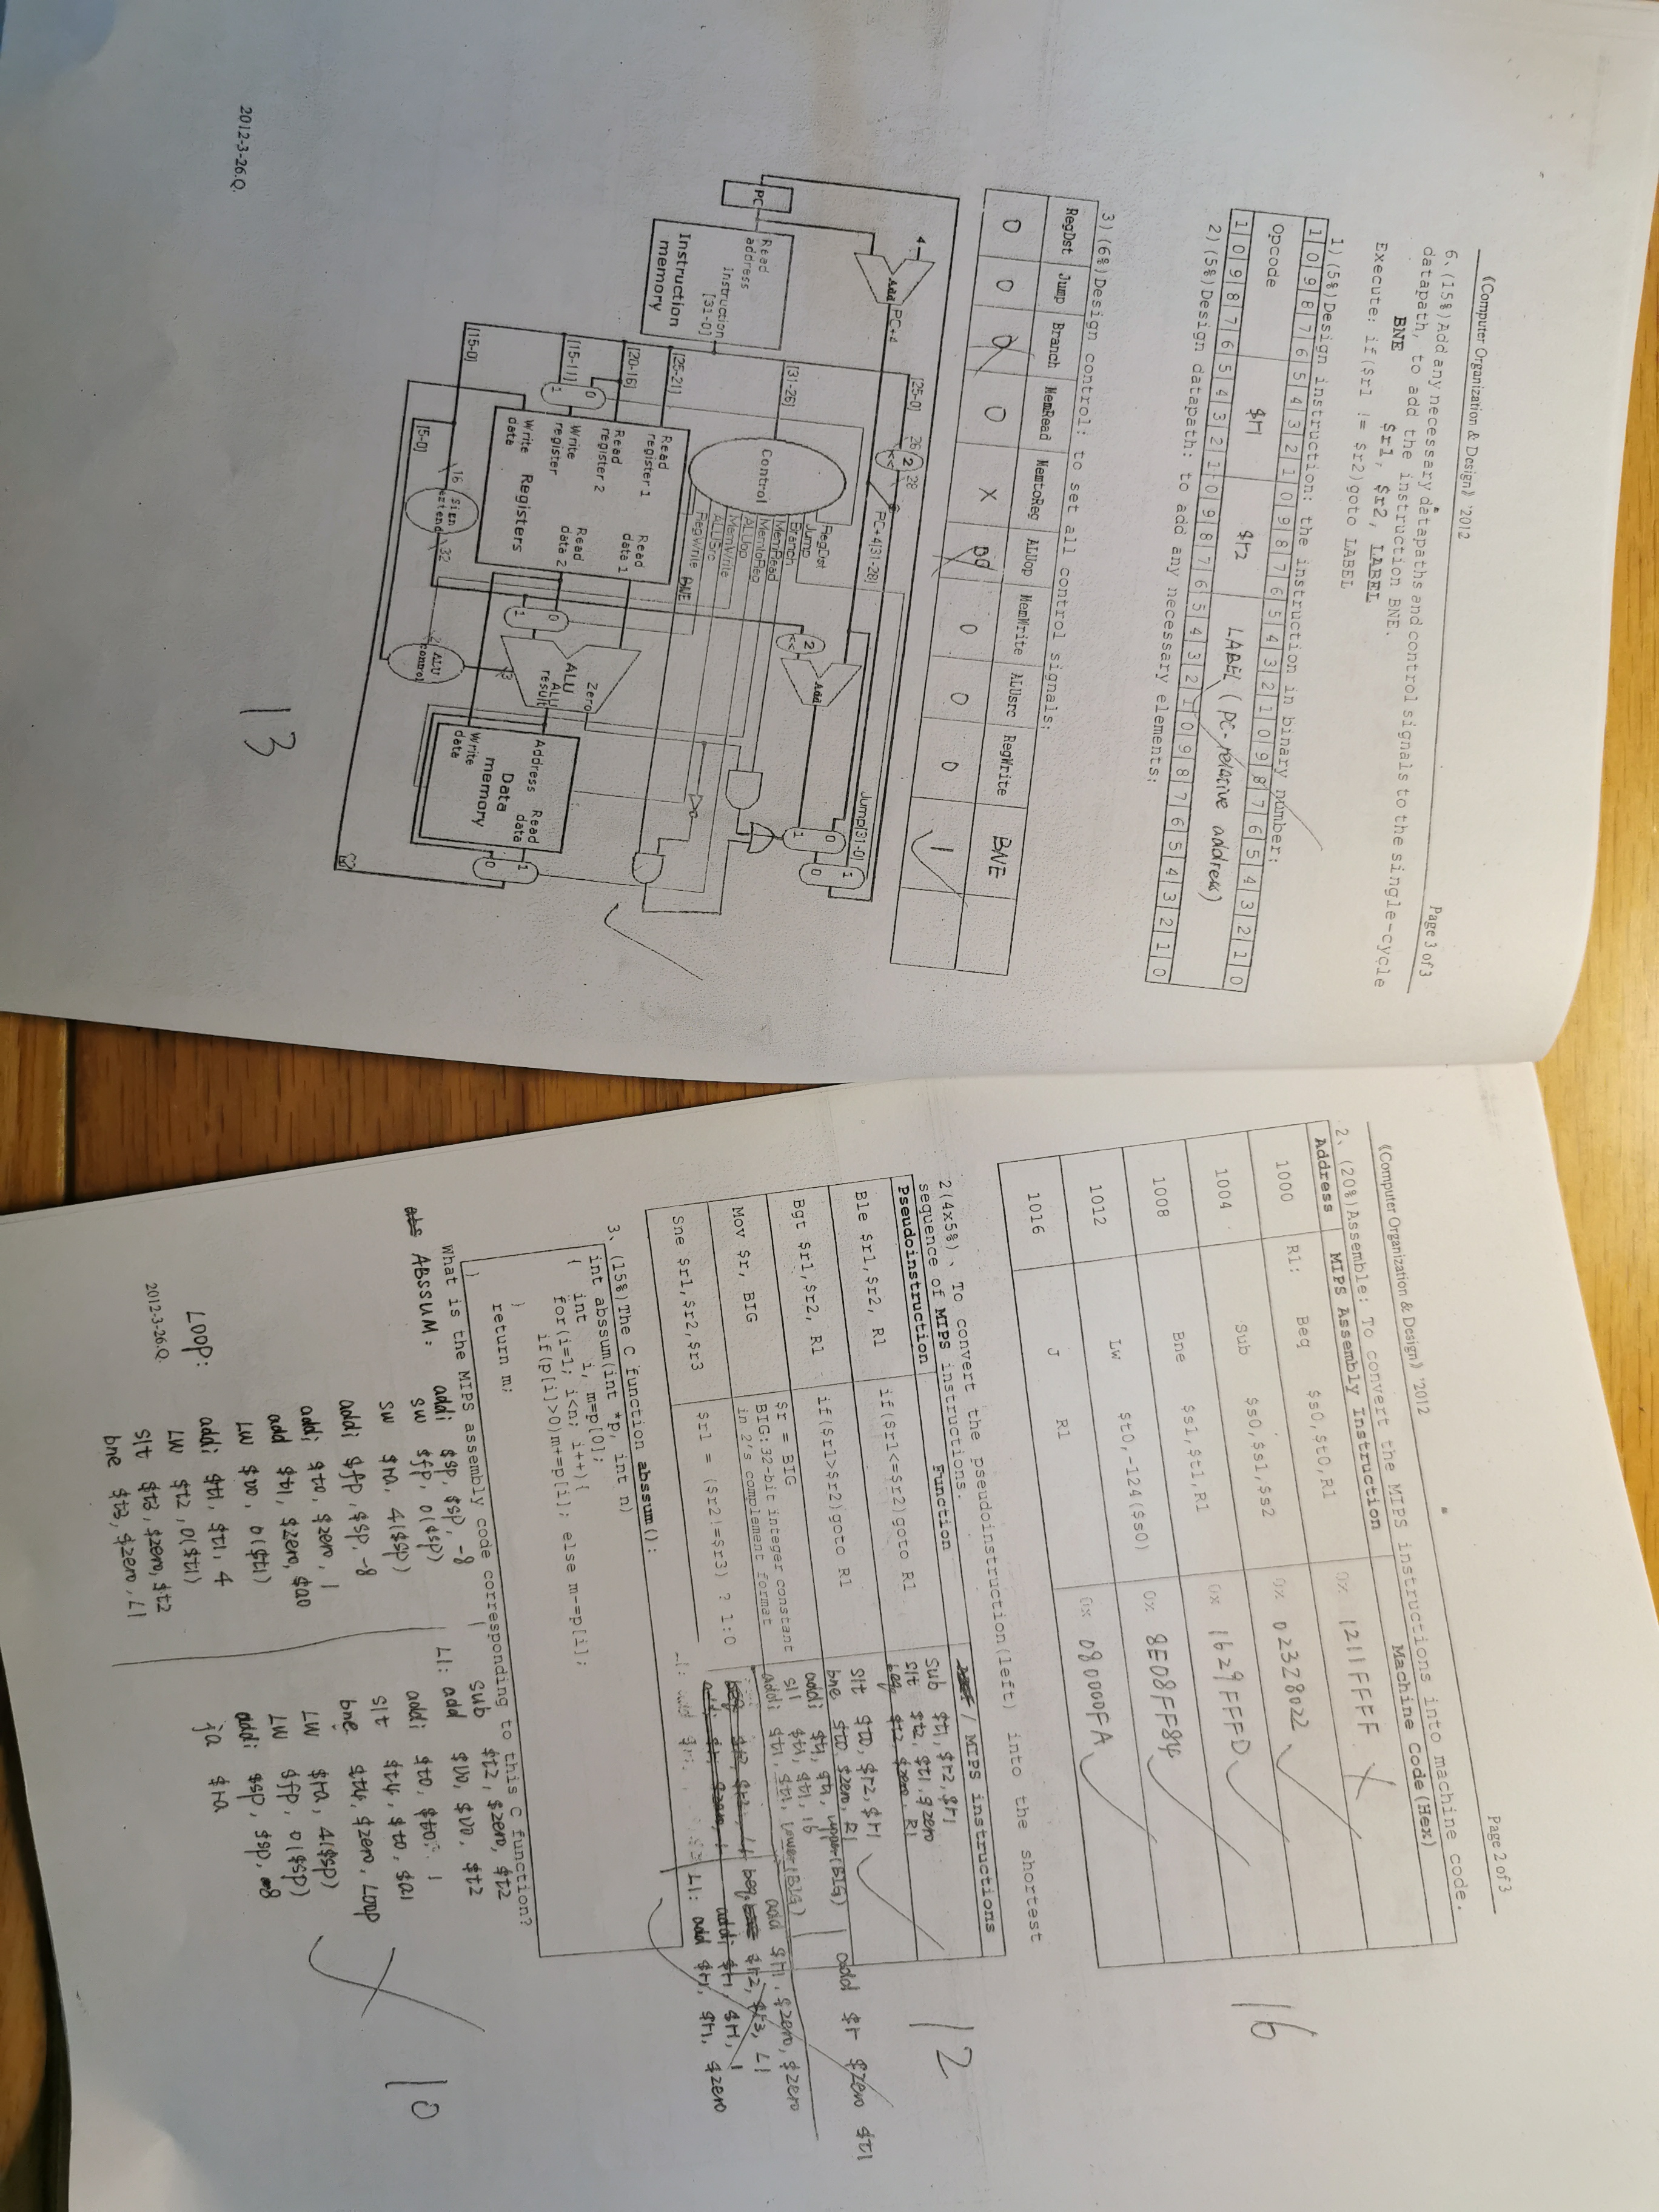 《Computer Organization & Design》'2012 Page 3 of 3
6、(15%)Add any necessary datapaths and control signals to the single-cycle
datapath, to add the instruction BNE.
BNE $r1, $r2, LABEL
Execute: if($r1 != $r2)goto LABEL
1)(5%)Design instruction: the instruction in binary number:
1 0 9 8 7 6 5 4 3 2 1 0 9 8 7 6 5 4 3 2 1 0 9 8 7 6 5 4 3 2 1 0
opcode $r1 $r2 LABEL (PC-relative address)
1 0 9 8 7 6 5 4 3 2 1 0 9 8 7 6 5 4 3 2 1 0 9 8 7 6 5 4 3 2 1 0
2)(5%)Design datapath: to add any necessary elements:
3)(6%)Design control: to set all control signals:
RegDst Jump Branch MemRead MemtoReg ALUop MemWrite ALUsrc RegWrite BNE
0 0 0 0 X 0 0 0 1
4
Add
PC+4
[25-0]
26
2
<<
28
PC+4[31-28]
Jump[31-0]
PC
Read address
Instruction [31-0]
Instruction memory
[31-26]
[25-21]
[20-16]
[15-11]
[15-0]
[5-0]
Control
RegDst
Jump
Branch
MemRead
MemtoReg
ALUop
MemWrite
ALUSrc
RegWrite
BNE
Read register 1
Read register 2
Write register
Write data
Registers
Read data 1
Read data 2
16
Sign extend
32
2
<<
Add
Zero
ALU
ALU result
3
ALU control
Address
Read data
Data memory
Write data
0
1
0
1
0
1
1
0
1
0
13
2012-3-26.Q.
《Computer Organization & Design》'2012 Page 2 of 3
2、(20%)Assemble: To convert the MIPS instructions into machine code.
Address MIPS Assembly Instruction Machine Code(Hex)
1000 R1: Beq $s0,$t0,R1 0x 1211FFFF
1004 Sub $s0,$s1,$s2 0x 02328022
1008 Bne $s1,$t1,R1 0x 1629FFFD
1012 Lw $t0,-124($s0) 0x 8E08FF84
1016 J R1 0x 080000FA
16
2(4x5%)、To convert the pseudoinstruction(left) into the shortest
sequence of MIPS instructions.
Pseudoinstruction Function MIPS instructions
Ble $r1,$r2, R1 if($r1<=$r2)goto R1
sub $t1,$r2,$r1
slt $t2,$t1,$zero
beq $t2,$zero,R1
Bgt $r1,$r2, R1 if($r1>$r2)goto R1
slt $t0,$r2,$r1
bne $t0,$zero,R1
Mov $r, BIG $r = BIG
BIG:32-bit integer constant
in 2's complement format
addi $t1,$t1,upper(BIG)
sll $t1,$t1,16
addi $t1,$t1,lower(BIG)
add $r $zero $t1
Sne $r1,$r2,$r3 $r1 = ($r2!=$r3) ? 1:0
add $r1,$zero,$zero
beq $r2,$r3,L1
addi $r1,$r1,1
L1: add $r1,$r1,$zero
12
3、(15%)The C function abssum():
int abssum(int *p, int n)
{ int i, m=p[0];
for(i=1; i<n; i++){
if(p[i]>0)m+=p[i]; else m-=p[i];
}
return m;
}
what is the MIPS assembly code corresponding to this C function?
ABSSUM: addi $sp,$sp,-8
sw $fp,0($sp)
sw $ra,4($sp)
addi $fp,$sp,-8
addi $t0,$zero,1
add $t1,$zero,$a0
LW $v0,0($t1)
LOOP: addi $t1,$t1,4
LW $t2,0($t1)
slt $t3,$zero,$t2
bne $t3,$zero,L1
sub $t2,$zero,$t2
L1: add $v0,$v0,$t2
addi $t0,$t0,1
slt $t4,$t0,$a1
bne $t4,$zero,Loop
LW $ra,4($sp)
LW $fp,0($sp)
addi $sp,$sp,8
ja $ra
10
2012-3-26.Q.